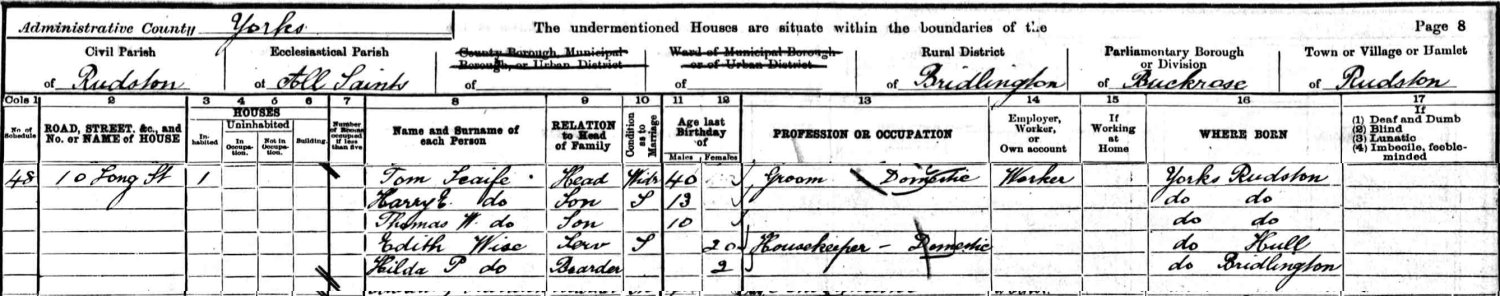 Administrative County Yorks The undermentioned Houses are situate within the boundaries of the Page 8
Civil Parish of Rudston
Ecclesiastical Parish of All Saints
County Borough Municipal Borough, or Urban District
Ward of Municipal Borough or of Urban District of
Rural District of Bridlington
Parliamentary Borough or Division of Buckrose
Town or Village or Hamlet of Rudston
Cols 1 2 3 4 5 6 7 8 9 10 11 12 13 14 15 16 17
No. of Schedule
ROAD, STREET, &c., and No. or NAME of HOUSE
HOUSES
In-habited
Uninhabited
In Occupa-tion.
Not in Occupa-tion.
Building.
Number of Rooms occupied if less than five
Name and Surname of each Person
RELATION to Head of Family
Condition as to Marriage
Age last Birthday of
Males Females
PROFESSION OR OCCUPATION
Employer, Worker, or Own account
If Working at Home
WHERE BORN
If
(1) Deaf and Dumb
(2) Blind
(3) Lunatic
(4) Imbecile, feeble-minded
48 10 Long St 1 Tom Scaife Head Widr 40 Groom Domestic Worker Yorks Rudston
Harry E. do Son S 13 do do
Thomas W do Son 10 do do
Edith Wise Serv S 20 Housekeeper - Domestic do Hull
Hilda P do Boarder 2 do Bridlington